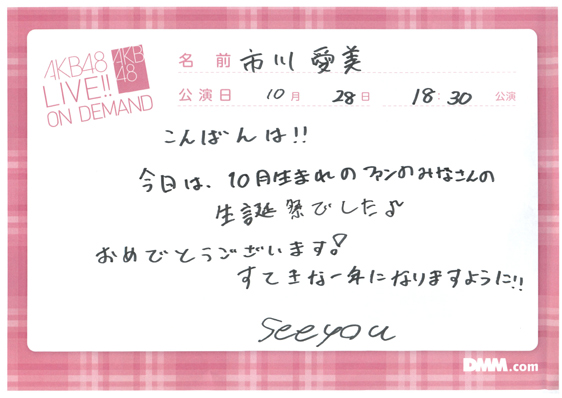 AKB48
LIVE!!
ON DEMAND
AKB
48
名前 市川愛美
公演日 10月 28日 18:30 公演
こんばんは!!
今日は、10月生まれのファンのみなさんの
生誕祭でした♪
おめでとうございます!
すてきな一年になりますように!!
Seeyou
DMM.com